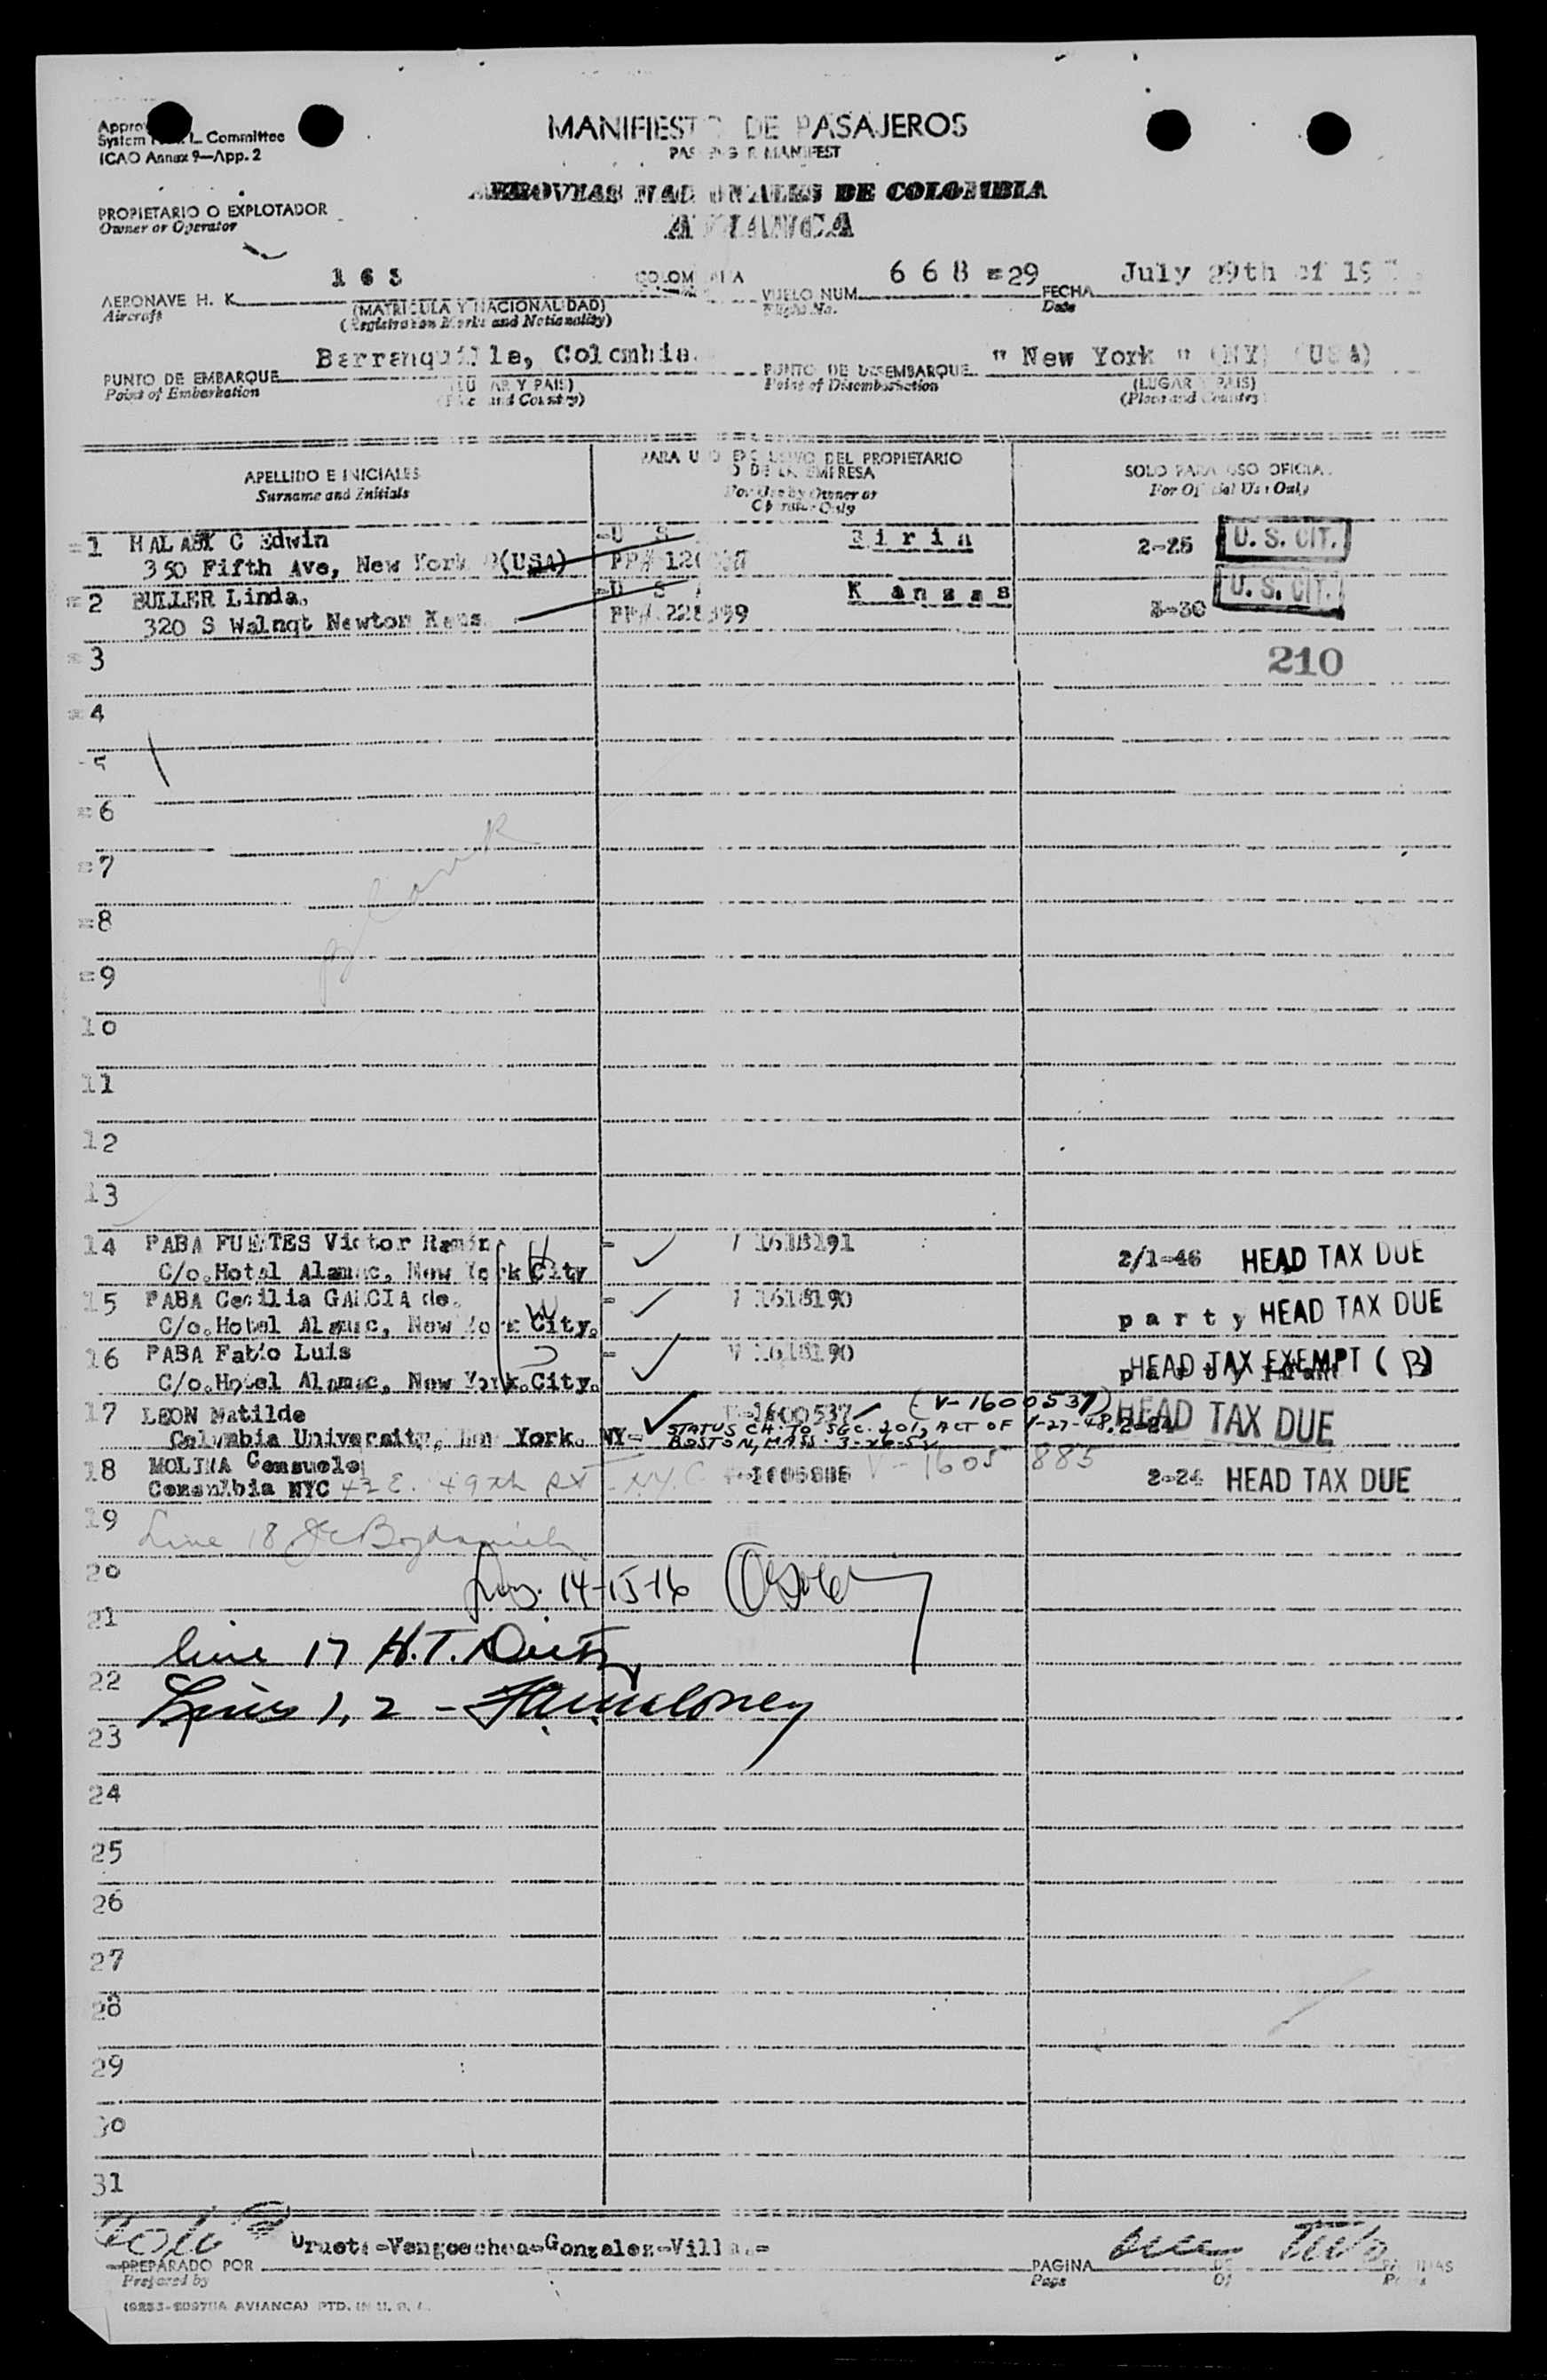 System Committee
ICAO Annex 9—App. 2
MANIFIESTO DE PASAJEROS
PASSENGER MANIFEST
AEROVIAS NACIONALES DE COLOMBIA
AVIANCA
PROPIETARIO O EXPLOTADOR
Owner or Operator
AERONAVE H. K. 163 COLOMBIA VUELO NUM. 668 =29 FECHA July 29th of 19
Aircraft (MATRICULA Y NACIONALIDAD) Flight No. Date
(Registration Marks and Nationality)
PUNTO DE EMBARQUE Barranquilla, Colombia. PUNTO DE DESEMBARQUE " New York " (NY) (USA)
Point of Embarkation (LUGAR Y PAIS) Point of Disembarkation (LUGAR Y PAIS)
(Place and Country) (Place and Country)
APELLIDO E INICIALES PARA USO EXCLUSIVO DEL PROPIETARIO SOLO PARA USO OFICIAL
Surname and Initials O DE LA EMPRESA For Official Use Only
For Use by Owner or
Operator Only
=1 HALABY C Edwin =U S 2-25 U. S. CIT.
350 Fifth Ave, New York (USA) PP#
=2 BULLER Linda. =U S K a n s a s U. S. CIT.
320 S Walnqt Newton Kans. PP#. 3-30
=3 210
=4
5
=6
=7
Blank
=8
=9
10
11
12
13
14 PABA FUENTES Victor Ramiro = 1618191 2/1-46 HEAD TAX DUE
C/o.Hotel Alamac, New York City
15 PABA Cecilia GARCIA de. = 1618190 p a r t y HEAD TAX DUE
C/o.Hotel Alamac, New York City.
16 PABA Fabio Luis = V 1618190 HEAD TAX EXEMPT ( B )
C/o.Hotel Alamac, New York.City.
17 LEON Matilde V-1600537 (V-1600537) HEAD TAX DUE
Columbia University, New York. NY= STATUS CH. TO SEC. 201, ACT OF 1-27-48. 2-24
BOSTON, MASS. 3-26-54
18 MOLINA Consuelo 1605885 V-1605885 2-24 HEAD TAX DUE
NYC 42 E. 49th St - N.Y.C
19 Line 18
20 Lins. 14-15-16
21
line 17 H.T.
22
Lines 1, 2 -
23
24
25
26
27
28
29
30
31
Urueta=Vengoechea=Gonzalez=Villa
PREPARADO POR PAGINA DE PAGINAS
Prepared by Page Of Pages
AVIANCA) PTD. IN U. S. A.